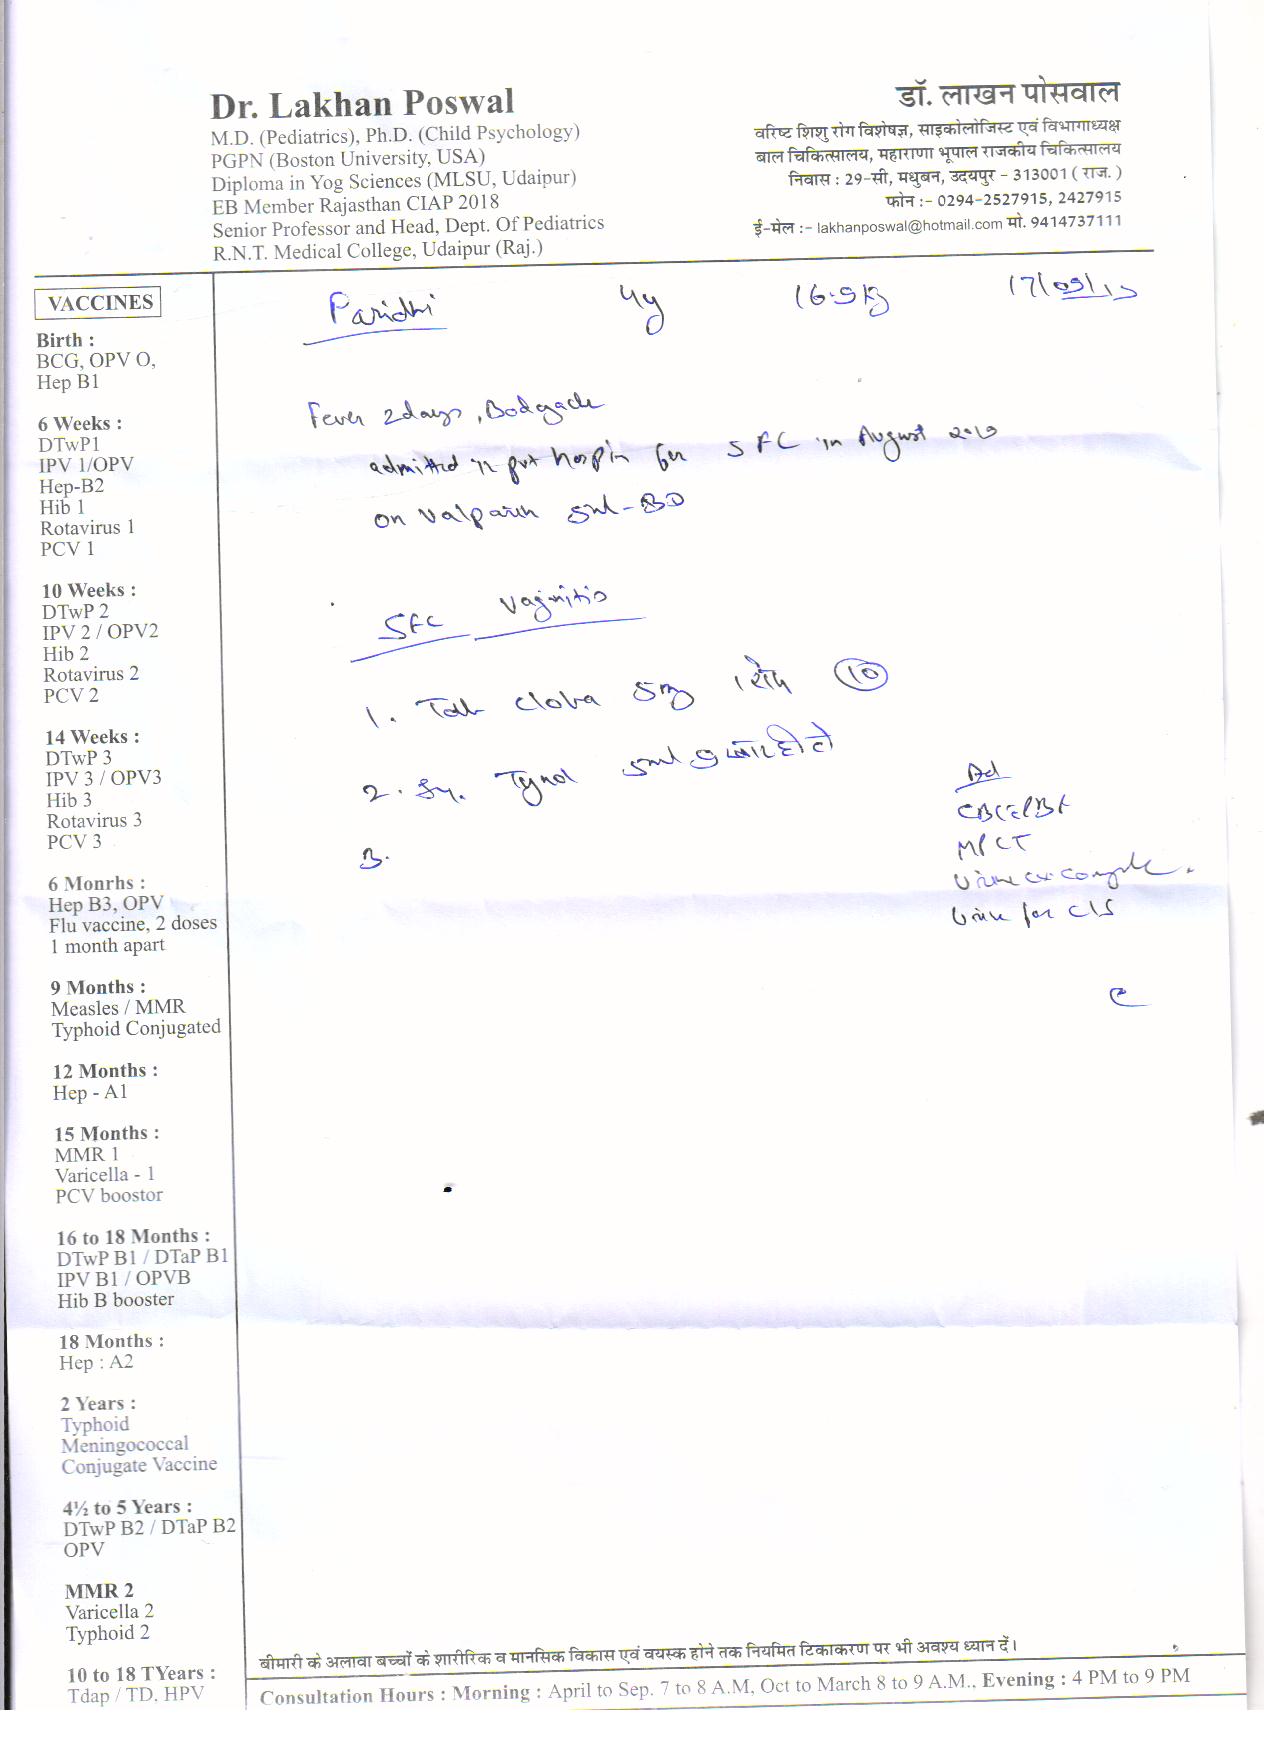 Dr. Lakhan Poswal
M.D. (Pediatrics), Ph.D. (Child Psychology)
PGPN (Boston University, USA)
Diploma in Yog Sciences (MLSU, Udaipur)
EB Member Rajasthan CIAP 2018
Senior Professor and Head, Dept. Of Pediatrics
R.N.T. Medical College, Udaipur (Raj.)
डॉ. लाखन पोसवाल
वरिष्ट शिशु रोग विशेषज्ञ, साइकोलोजिस्ट एवं विभागाध्यक्ष
बाल चिकित्सालय, महाराणा भूपाल राजकीय चिकित्सालय
निवास : 29-सी, मधुबन, उदयपुर - 313001 ( राज. )
फोन :- 0294-2527915, 2427915
ई-मेल :- lakhanposwal@hotmail.com मो. 9414737111
VACCINES
Birth :
BCG, OPV O,
Hep B1
6 Weeks :
DTwP1
IPV 1/OPV
Hep-B2
Hib 1
Rotavirus 1
PCV 1
10 Weeks :
DTwP 2
IPV 2 / OPV2
Hib 2
Rotavirus 2
PCV 2
14 Weeks :
DTwP 3
IPV 3 / OPV3
Hib 3
Rotavirus 3
PCV 3
6 Monrhs :
Hep B3, OPV
Flu vaccine, 2 doses
1 month apart
9 Months :
Measles / MMR
Typhoid Conjugated
12 Months :
Hep - A1
15 Months :
MMR 1
Varicella - 1
PCV boostor
16 to 18 Months :
DTwP B1 / DTaP B1
IPV B1 / OPVB
Hib B booster
18 Months :
Hep : A2
2 Years :
Typhoid
Meningococcal
Conjugate Vaccine
4½ to 5 Years :
DTwP B2 / DTaP B2
OPV
MMR 2
Varicella 2
Typhoid 2
10 to 18 TYears :
Tdap / TD, HPV
Paridhi 4y 16.9 kg
Fever 2 days, Bodyache
admitted in pvt for SFC in August
on Valparin 5ml - BD
SFC Vaginitis
1. Tab Cloba 5mg 1 रोज 10
2. Sy. 5ml
3.
Ad
MPCT
Urine complete
Urine for C/S
बीमारी के अलावा बच्चों के शारीरिक व मानसिक विकास एवं वयस्क होने तक नियमित टिकाकरण पर भी अवश्य ध्यान दें।
Consultation Hours : Morning : April to Sep. 7 to 8 A.M, Oct to March 8 to 9 A.M., Evening : 4 PM to 9 PM